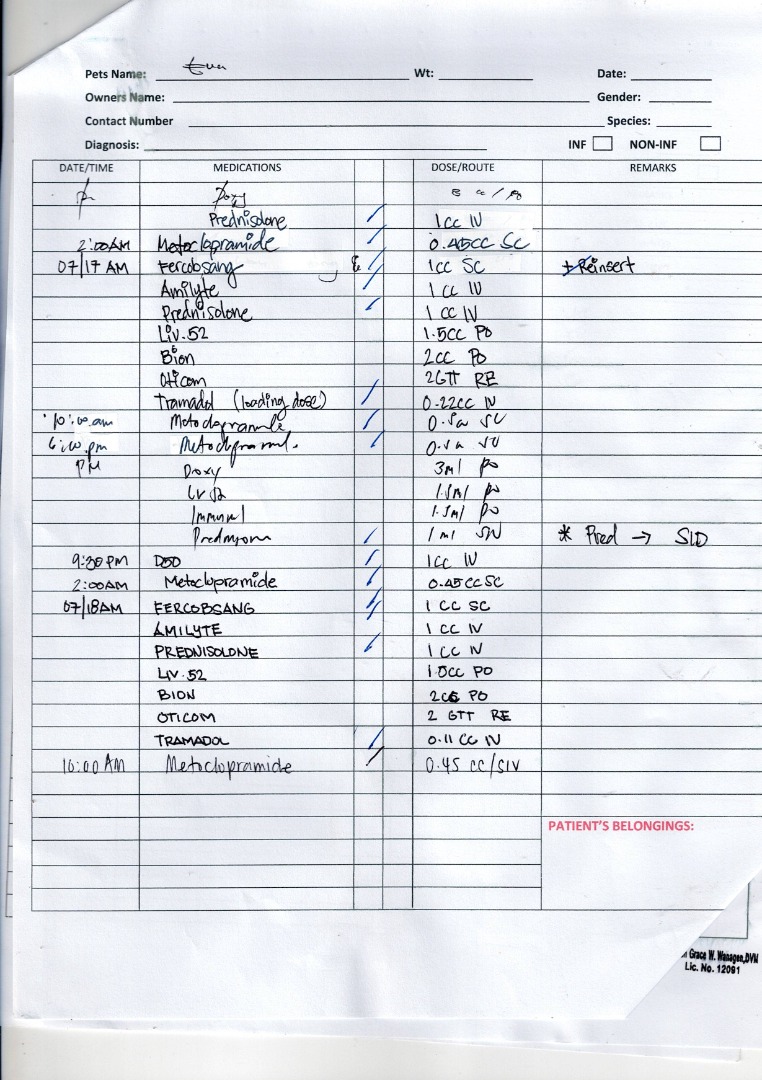 Pets Name: Eva Wt: Date:
Owners Name: Gender:
Contact Number Species:
Diagnosis: INF NON-INF
DATE/TIME MEDICATIONS DOSE/ROUTE REMARKS
Doxy 3 cc / PO
Prednisolone 1cc IV
2:00AM Metoclopramide 0.45cc SC
07/17 AM Fercobsang 1cc SC Reinsert
Amilyte 1 cc IV
Prednisolone 1 cc IV
Liv.52 1.5cc PO
Bion 2cc PO
Oticom 2GTT RE
Tramadol (loading dose) 0.22cc IV
10:00 am
6:00 pm
PM Doxy 3ml po
1.5ml po
1.5ml po
1 ml * Pred → SID
9:30 PM 1cc IV
2:00AM Metoclopramide 0.45 CC SC
07/18AM FERCOBSANG 1 CC SC
AMILYTE 1 CC IV
PREDNISOLONE 1 CC IV
LIV.52 PO
BION 2cc PO
OTICOM 2 GTT RE
TRAMADOL 0.11 CC IV
10:00 AM Metoclopramide 0.45 CC/SIV
PATIENT'S BELONGINGS:
Grace W. Wanagen, DVM
Lic. No. 12091